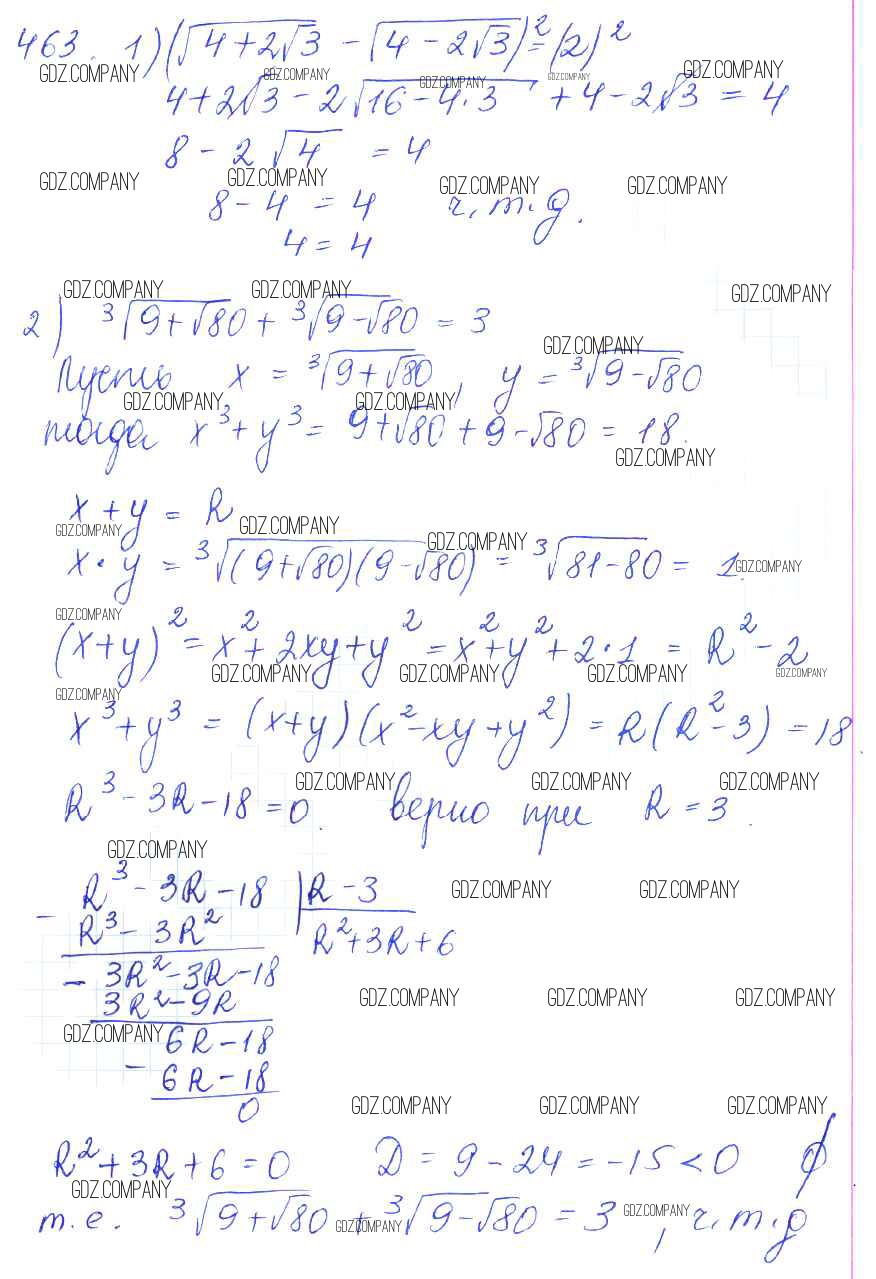 463. 1) (√(4+2√3) - √(4-2√3))² = (2)²
GDZ.COMPANY GDZ.COMPANY GDZ.COMPANY GDZ.COMPANY GDZ.COMPANY
4+2√3 - 2√(16-4·3) + 4-2√3 = 4
8 - 2√4 = 4
GDZ.COMPANY GDZ.COMPANY GDZ.COMPANY GDZ.COMPANY
8 - 4 = 4 ч.т.д.
4 = 4
GDZ.COMPANY GDZ.COMPANY GDZ.COMPANY
2) ³√(9+√80) + ³√(9-√80) = 3
GDZ.COMPANY
Пусть x = ³√(9+√80), y = ³√(9-√80)
GDZ.COMPANY GDZ.COMPANY
тогда x³+y³ = 9+√80+9-√80 = 18.
GDZ.COMPANY
x + y = R
GDZ.COMPANY GDZ.COMPANY GDZ.COMPANY
x·y = ³√((9+√80)(9-√80)) = ³√(81-80) = 1.
GDZ.COMPANY
GDZ.COMPANY
(x+y)² = x²+2xy+y² = x²+y²+2·1 = R²-2
GDZ.COMPANY GDZ.COMPANY GDZ.COMPANY GDZ.COMPANY
GDZ.COMPANY
x³+y³ = (x+y)(x²-xy+y²) = R(R²-3) = 18
GDZ.COMPANY GDZ.COMPANY GDZ.COMPANY
R³-3R-18=0. верно при R=3.
GDZ.COMPANY
- R³-3R-18 | R-3
GDZ.COMPANY GDZ.COMPANY
R³-3R² R²+3R+6
- 3R²-3R-18
3R²-9R
GDZ.COMPANY GDZ.COMPANY GDZ.COMPANY
GDZ.COMPANY
6R-18
- 6R-18
0
GDZ.COMPANY GDZ.COMPANY GDZ.COMPANY
R²+3R+6=0 D = 9-24 = -15 < 0 ∅
GDZ.COMPANY
т.е. ³√(9+√80) + ³√(9-√80) = 3, ч.т.д
GDZ.COMPANY GDZ.COMPANY